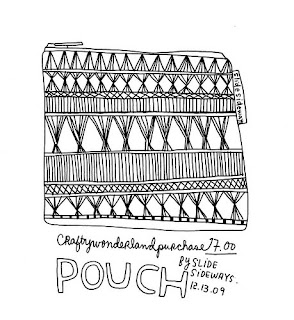 Slide Sideways
Craftywonderland purchase 17.00
POUCH
BY SLIDE
SIDEWAYS.
12.13.09